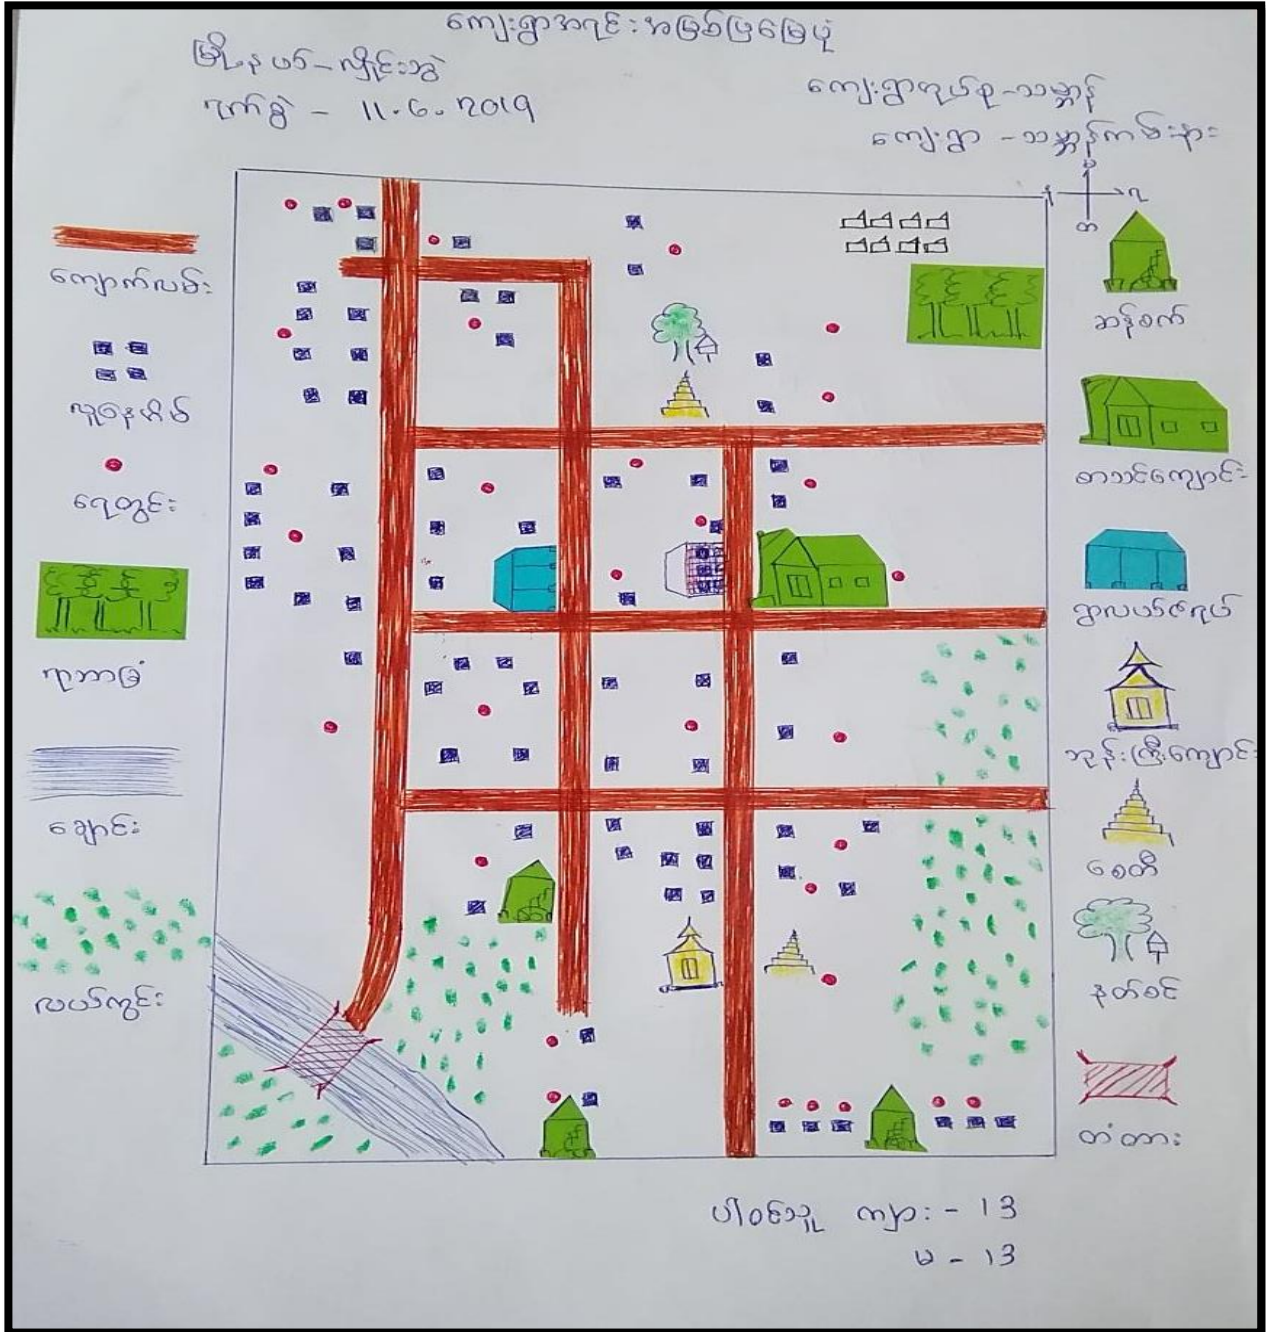 ကျေးရွာအရင်းအမြစ်ပြမြေပုံ
မြို့နယ်-လှိုင်းဘွဲ
ရက်စွဲ - 11.6.2019
ကျေးရွာအုပ်စု-သမ္ဘာန်
ကျေးရွာ - သမ္ဘာန်ကမ်းနား
မ
တ
ကျောက်လမ်း
လူနေအိမ်
ရေတွင်း
ရာဘာခြံ
ချောင်း
လယ်ကွင်း
ဆန်စက်
စာသင်ကျောင်း
ရွာလယ်ဇရပ်
ဘုန်းကြီးကျောင်း
စေတီ
နတ်စင်
တံတား
ပါဝင်သူ ကျား - 13
မ - 13